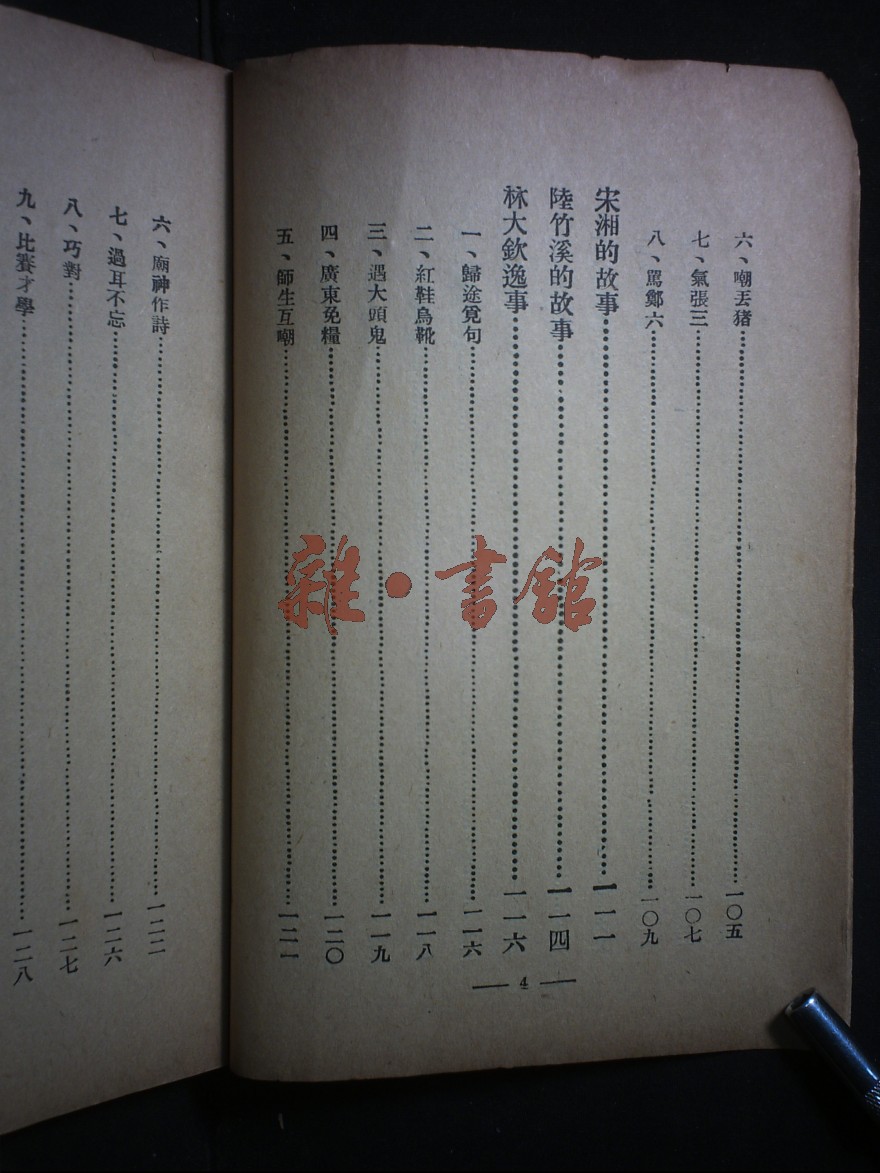 六、嘲丟猪……一〇五
七、氣張三……一〇七
八、罵鄭六……一〇九
宋湘的故事……一一一
陸竹溪的故事……一一四
林大欽逸事……一一六
一、歸途覓句……一一六
二、紅鞋烏靴……一一八
三、遇大頭鬼……一一九
四、廣東免糧……一二〇
五、師生互嘲……一二一
— 4 —
六、廟神作詩……一二二
七、過耳不忘……一二六
八、巧對……一二七
九、比賽才學……一二八
雜·書館